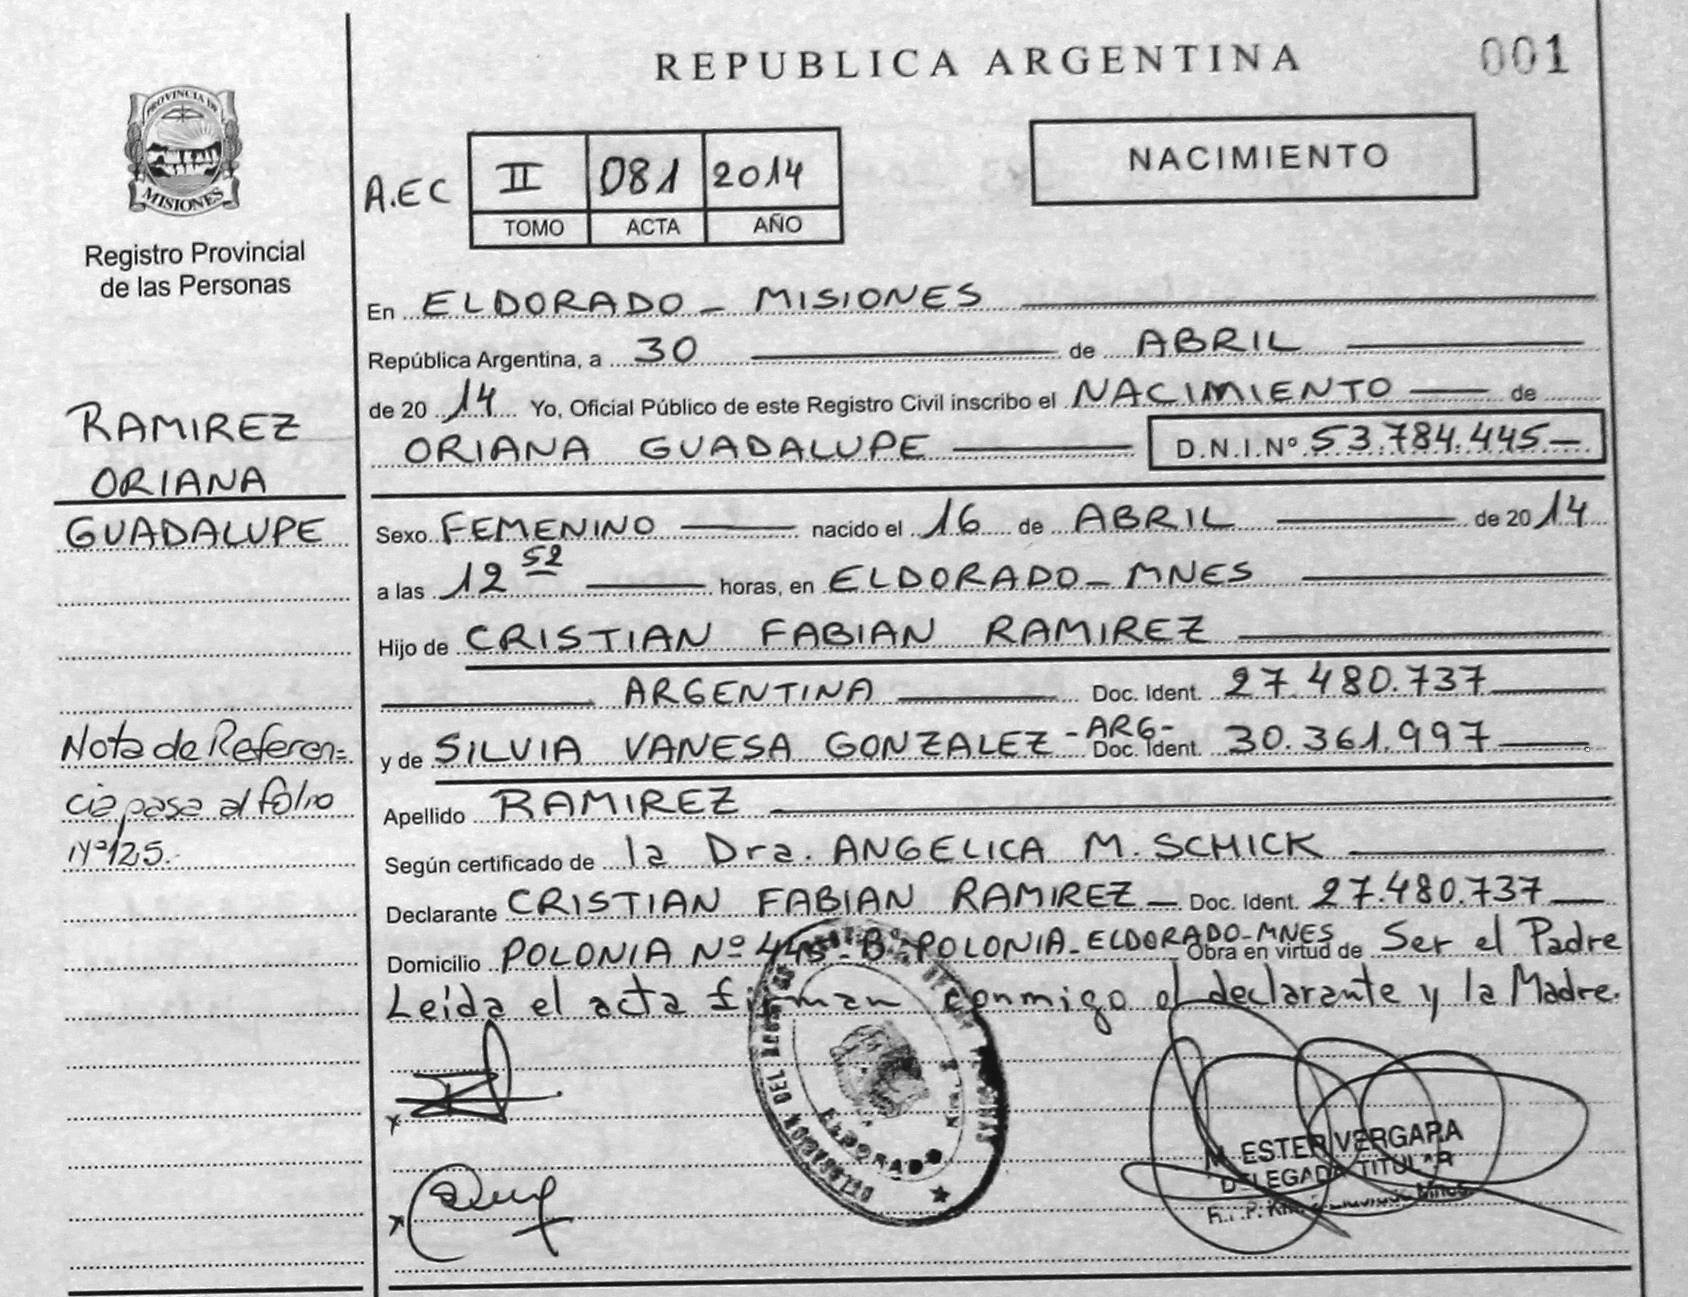 REPUBLICA ARGENTINA
001
PROVINCIA DE
MISIONES
Registro Provincial
de las Personas
A.EC II 081 2014
TOMO ACTA AÑO
NACIMIENTO
En ELDORADO - MISIONES
República Argentina, a 30 de ABRIL
de 20 14 Yo, Oficial Público de este Registro Civil inscribo el NACIMIENTO de
ORIANA GUADALUPE D.N.I.Nº 53.784.445
RAMIREZ
ORIANA
GUADALUPE
Sexo FEMENINO nacido el 16 de ABRIL de 20 14
a las 12 52 horas, en ELDORADO - MNES
Hijo de CRISTIAN FABIAN RAMIREZ
ARGENTINA Doc. Ident. 27.480.737
y de SILVIA VANESA GONZALEZ - ARG - Doc. Ident. 30.361.997
Apellido RAMIREZ
Según certificado de la Dra. ANGELICA M. SCHICK
Declarante CRISTIAN FABIAN RAMIREZ Doc. Ident. 27.480.737
Domicilio POLONIA Nº 445 - Bº POLONIA - ELDORADO - MNES Obra en virtud de Ser el Padre
Leída el acta firman conmigo el declarante y la Madre.
Nota de Referen=
cia pasa al folio
Nº 125.
ELDORADO
M. ESTER VERGARA
DELEGADA TITULAR